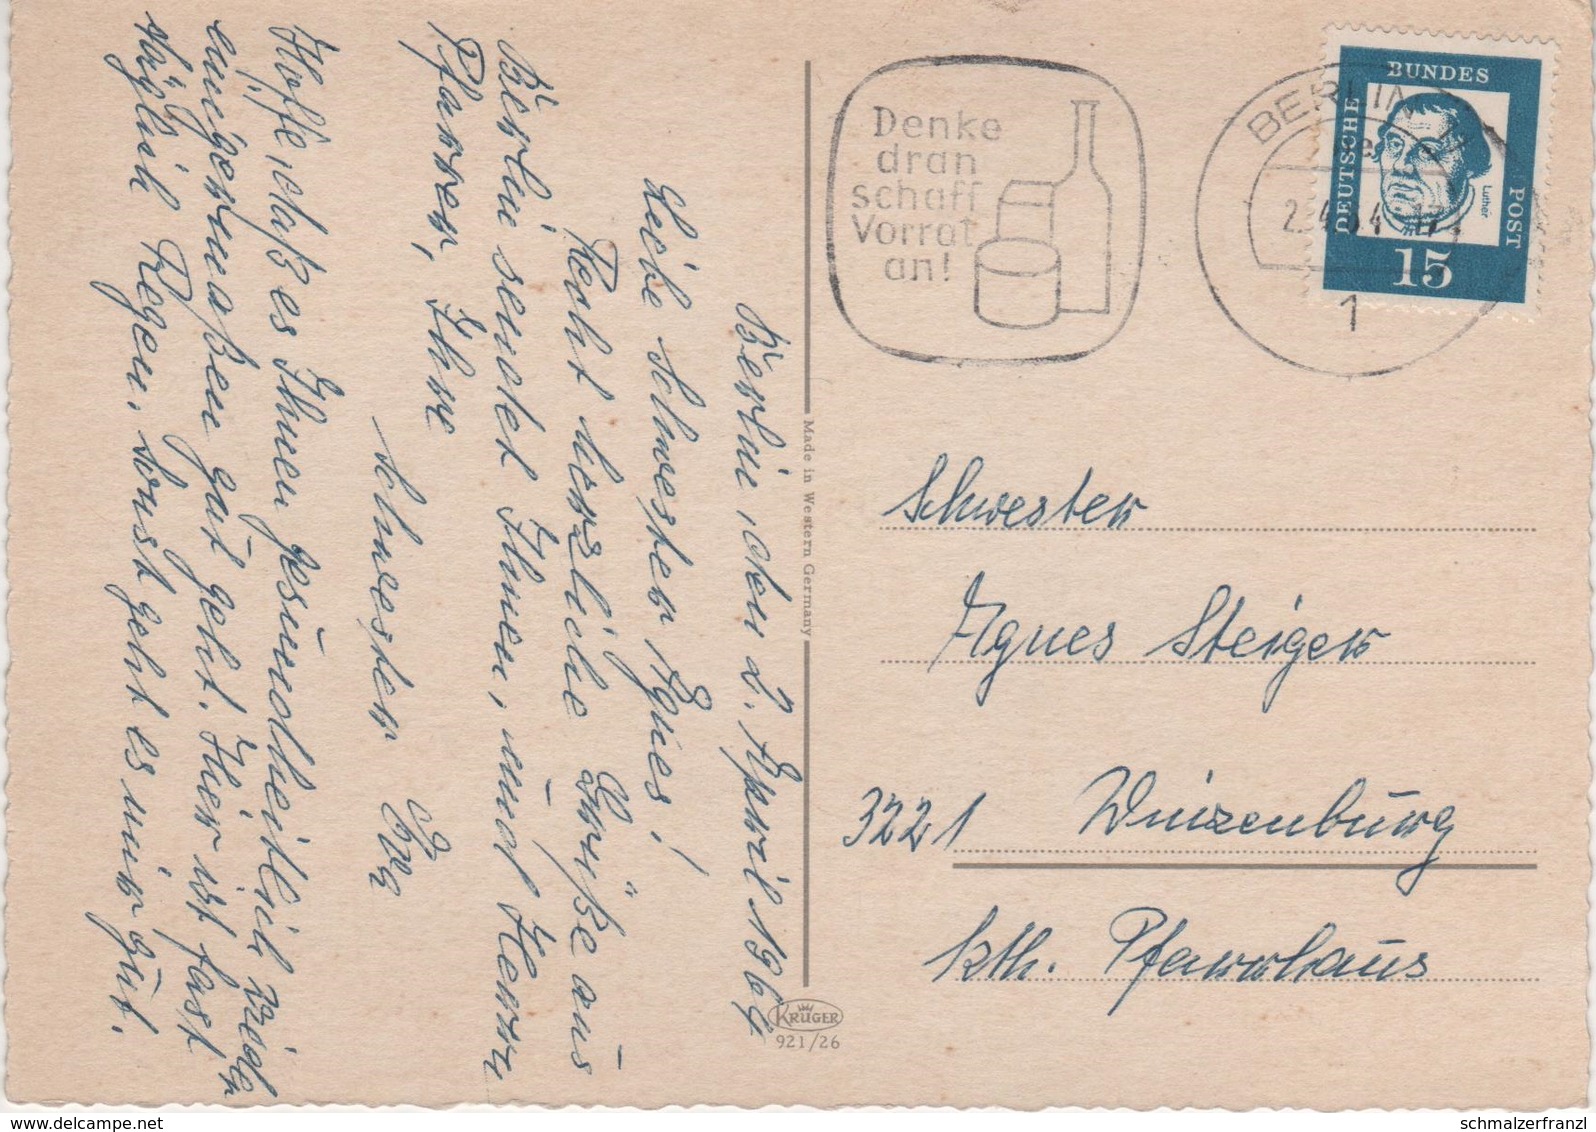 Berlin, den 2. April 1964
Liebe Schwester Agnes!
Recht herzliche Grüße aus
Berlin sendet Ihnen, und Herrn
Pfarrer, Ihre
Schwester Eva
Hoffe, daß es Ihnen gesundheitlich wieder
einigermaßen gut geht. Hier ist fast
täglich Regen, sonst geht es mir gut.
Made in Western Germany
KRÜGER
921/26
Denke
dran
schaff
Vorrat
an!
BERLIN
2.4.64-17
1
DEUTSCHE
BUNDES
POST
Luther
15
Schwester
Agnes Steiger
3221 Winzenburg
kth. Pfarrhaus
www.delcampe.net
schmalzerfranzl